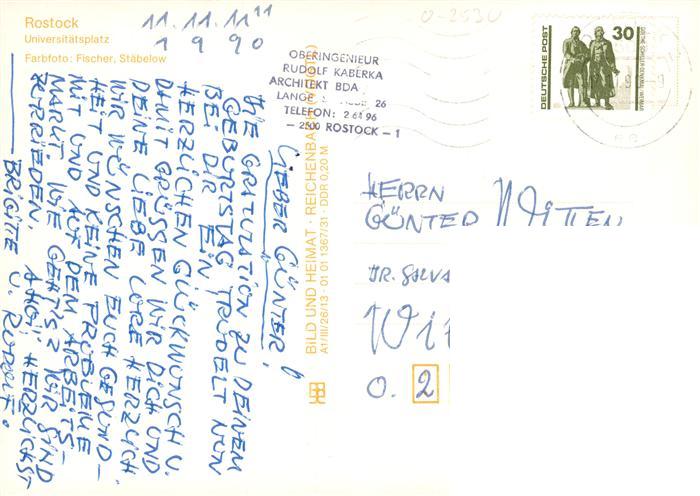 Rostock
Universitätsplatz
Farbfoto: Fischer, Stäbelow
11.11.11¹¹
1990
OBERINGENIEUR
RUDOLF KABERKA
ARCHITEKT BDA
LANGE 26
TELEFON: 2 64 96
– 2500 ROSTOCK – 1
O-2530
DEUTSCHE POST
30
LIEBER GÜNTER!
DIE GRATULATION ZU DEINEM
GEBURTSTAG TRUDELT NUN
BEI DIR EIN.
HERZLICHEN GLÜCKWUNSCH U.
DAMIT GRÜSSEN WIR DICH UND
DEINE LIEBE LORE HERZLICH
WIR WÜNSCHEN EUCH GESUND-
HEIT UND KEINE PROBLEME
MIT UND AUF DEM ARBEITS-
MARKT. WIE GEHT'S? WIR SIND
ZUFRIEDEN. AHOI, HERZLICHST
BRIGITTE U. RUDOLF.
BILD UND HEIMAT · REICHENBACH
A1/III/26/13 · 01 01 1367/31 · DDR 0,20 M
HERRN
GÜNTER WITTEN
DR.
WIT
O. 2